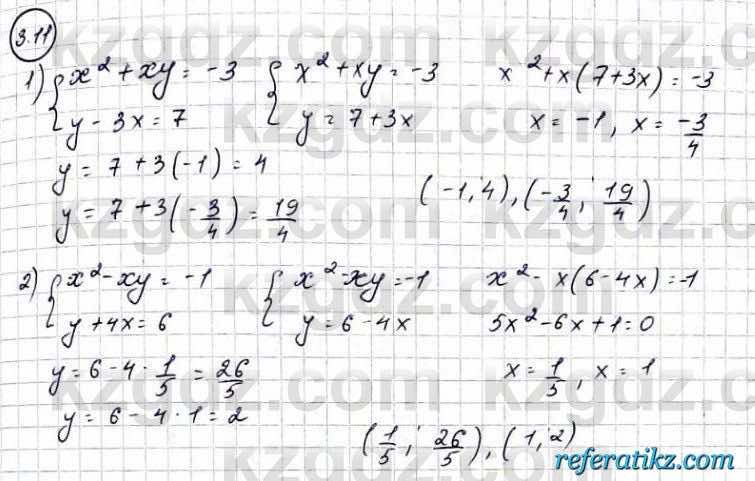 3.11
1) { x² + xy = -3   { x² + xy = -3   x² + x(7+3x) = -3
y - 3x = 7   y = 7 + 3x   x = -1, x = -3/4
y = 7 + 3(-1) = 4
y = 7 + 3(-3/4) = 19/4   (-1; 4), (-3/4; 19/4)
2) { x² - xy = -1   { x² - xy = -1   x² - x(6-4x) = -1
y + 4x = 6   y = 6 - 4x   5x² - 6x + 1 = 0
y = 6 - 4 · 1/5 = 26/5   x = 1/5, x = 1
y = 6 - 4 · 1 = 2
(1/5; 26/5), (1; 2)
kzgdz.com
referatikz.com